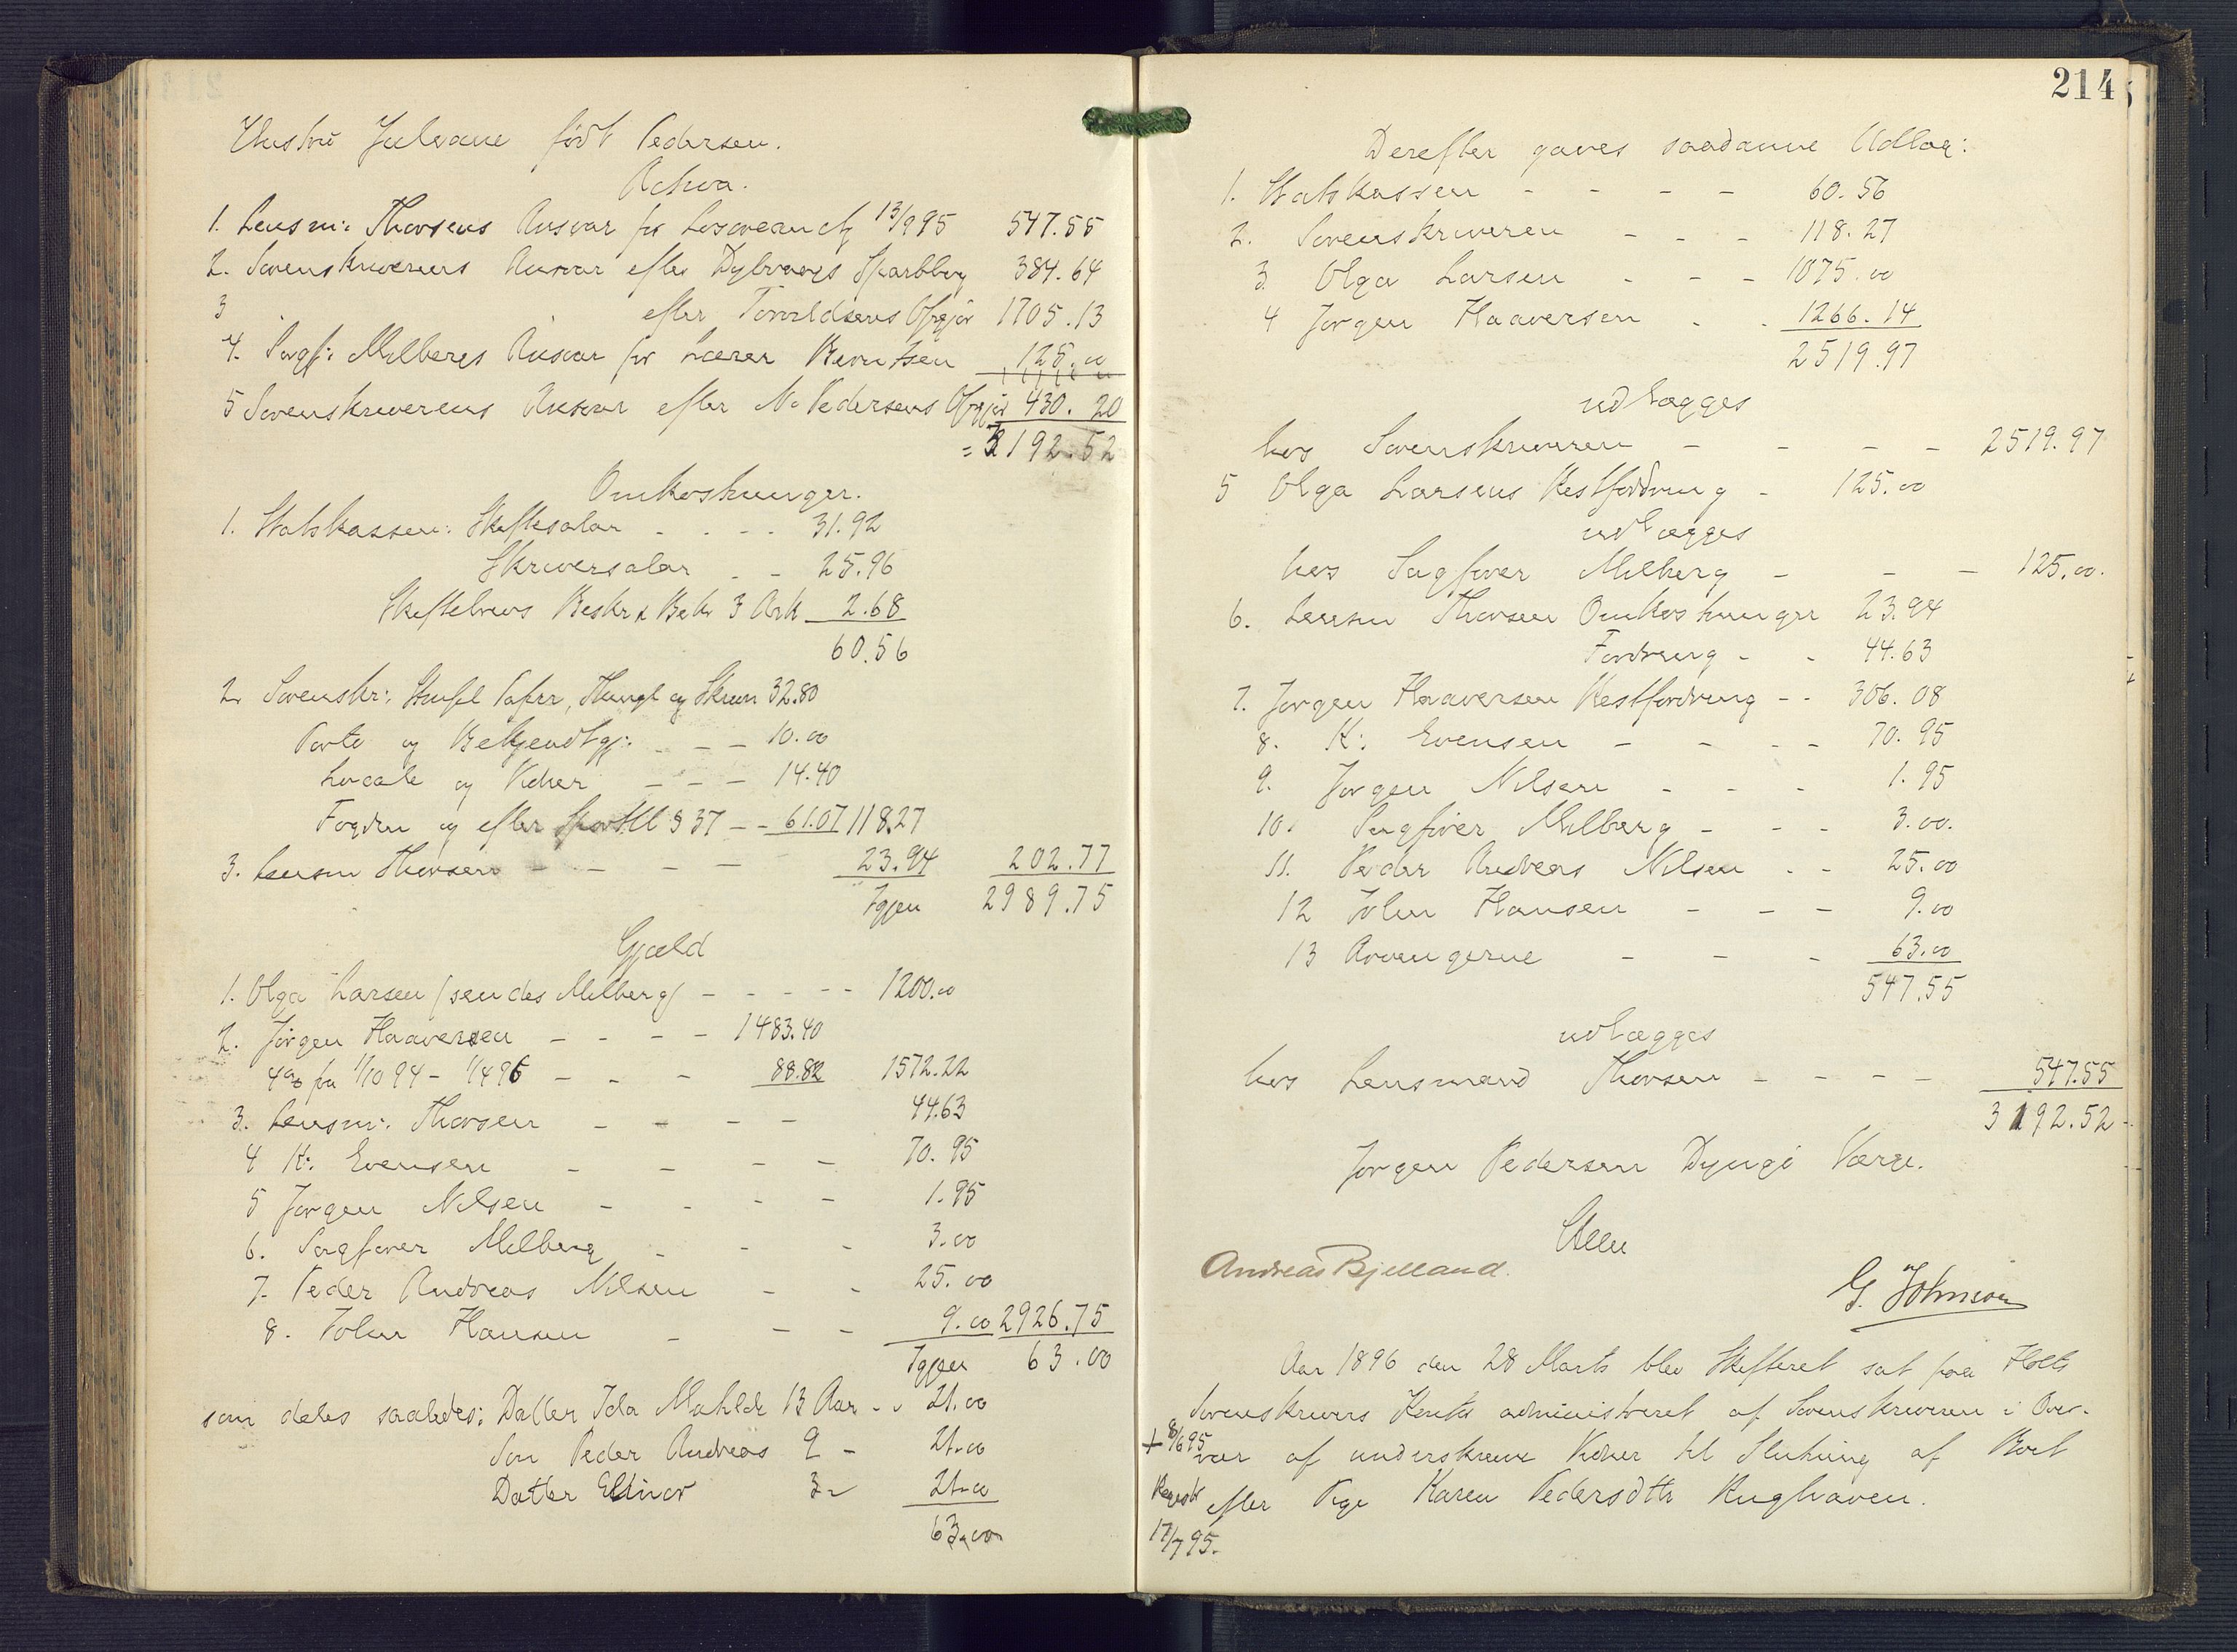 Hustru Juliane født Pedersen.
Activa.
1. Lensm: Thorsens Ansvar for Losøreauct 13/9 95 547.55
2. Sorenskriverens Ansvar efter Dybvaags Sparbbog 384.64
3 efter Torvildsens Opgjør 1705.13
4. Sagf: Milbergs Ansvar for Lærer Berntsen 125.00
5 Sorenskriverens Ansvar efter N. Pedersens Opgjør 430.20
= 3192.52
Omkostninger.
1. Statskassen: Skiftesalær - - - - 31.92
Skriversalær - - 25.96
Skiftebrevs Beskr & Bekr 3 Ark 2.68
60.56
2. Sorenskr: Stempl Papir, Thingl og Skrivn 32.80
Porto og Bekjendtgj: - - - 10.00
Locale og Vidner - - - 14.40
Fogden og efter Sportll § 37 - - 61.07 118.27
3. Lensm Thorsen - - - 23.94 202.77
Igjen 2989.75
Gjæld
1. Olga Larsen (sendes Milberg) - - - - - 1200.00
2. Jørgen Haaversen - - - - 1483.40
4% fra 1/10 94 - 1/4 96 - - - 88.82 1572.22
3. Lensm: Thorsen - - - - 44.63
4 K: Evensen - - - - 70.95
5 Jørgen Nilsen - - - - 1.95
6. Sagfører Milberg - - - 3.00
7. Peder Andreas Nilsen - - 25.00
8. John Hansen - - - 9.00 2926.75
Igjen 63.00
som deles saaledes: Datter Ida Mathilde 13 Aar - - 21.00
Søn Peder Andreas 9 - 21.00
Datter Ellinor 3 - 21.00
63.00
214
Derefter gaves saadanne Udlæg:
1. Statskassen - - - - 60.56
2. Sorenskriveren - - - 118.27
3. Olga Larsen - - - 1075.00
4 Jørgen Haaversen - - 1266.14
2519.97
udlægges
hos Sorenskriveren - - - - 2519.97
5 Olga Larsens Restfordring - 125.00
udlægges
hos Sagfører Milberg - - - 125.00.
6. Lensm Thorsen Omkostninger 23.94
Fordring - - 44.63
7. Jørgen Haaversen Restfordring - - 306.08
8. K: Evensen - - - - 70.95
9. Jørgen Nilsen - - - 1.95
10. Sagfører Milberg - - - 3.00.
11. Peder Andreas Nilsen - - 25.00
12 John Hansen - - - 9.00
13 Arvingerne - - - 63.00
547.55
udlægges
hos Lensmand Thorsen - - - - 547.55
3192.52
Jørgen Pedersen Dynge Værge.
Andreas Bjelland.
G. Johnson
Aar 1896 den 28 Marts blev Skifteret sat paa Holts
Sorenskrivers Kontor administreret af Sorenskriveren i Over-
+ 8/6 95 vær af underskrevne Vidner til Slutning af Boet
Registr efter Pige Karen Pedersdtr Kughaven.
17/7 95.